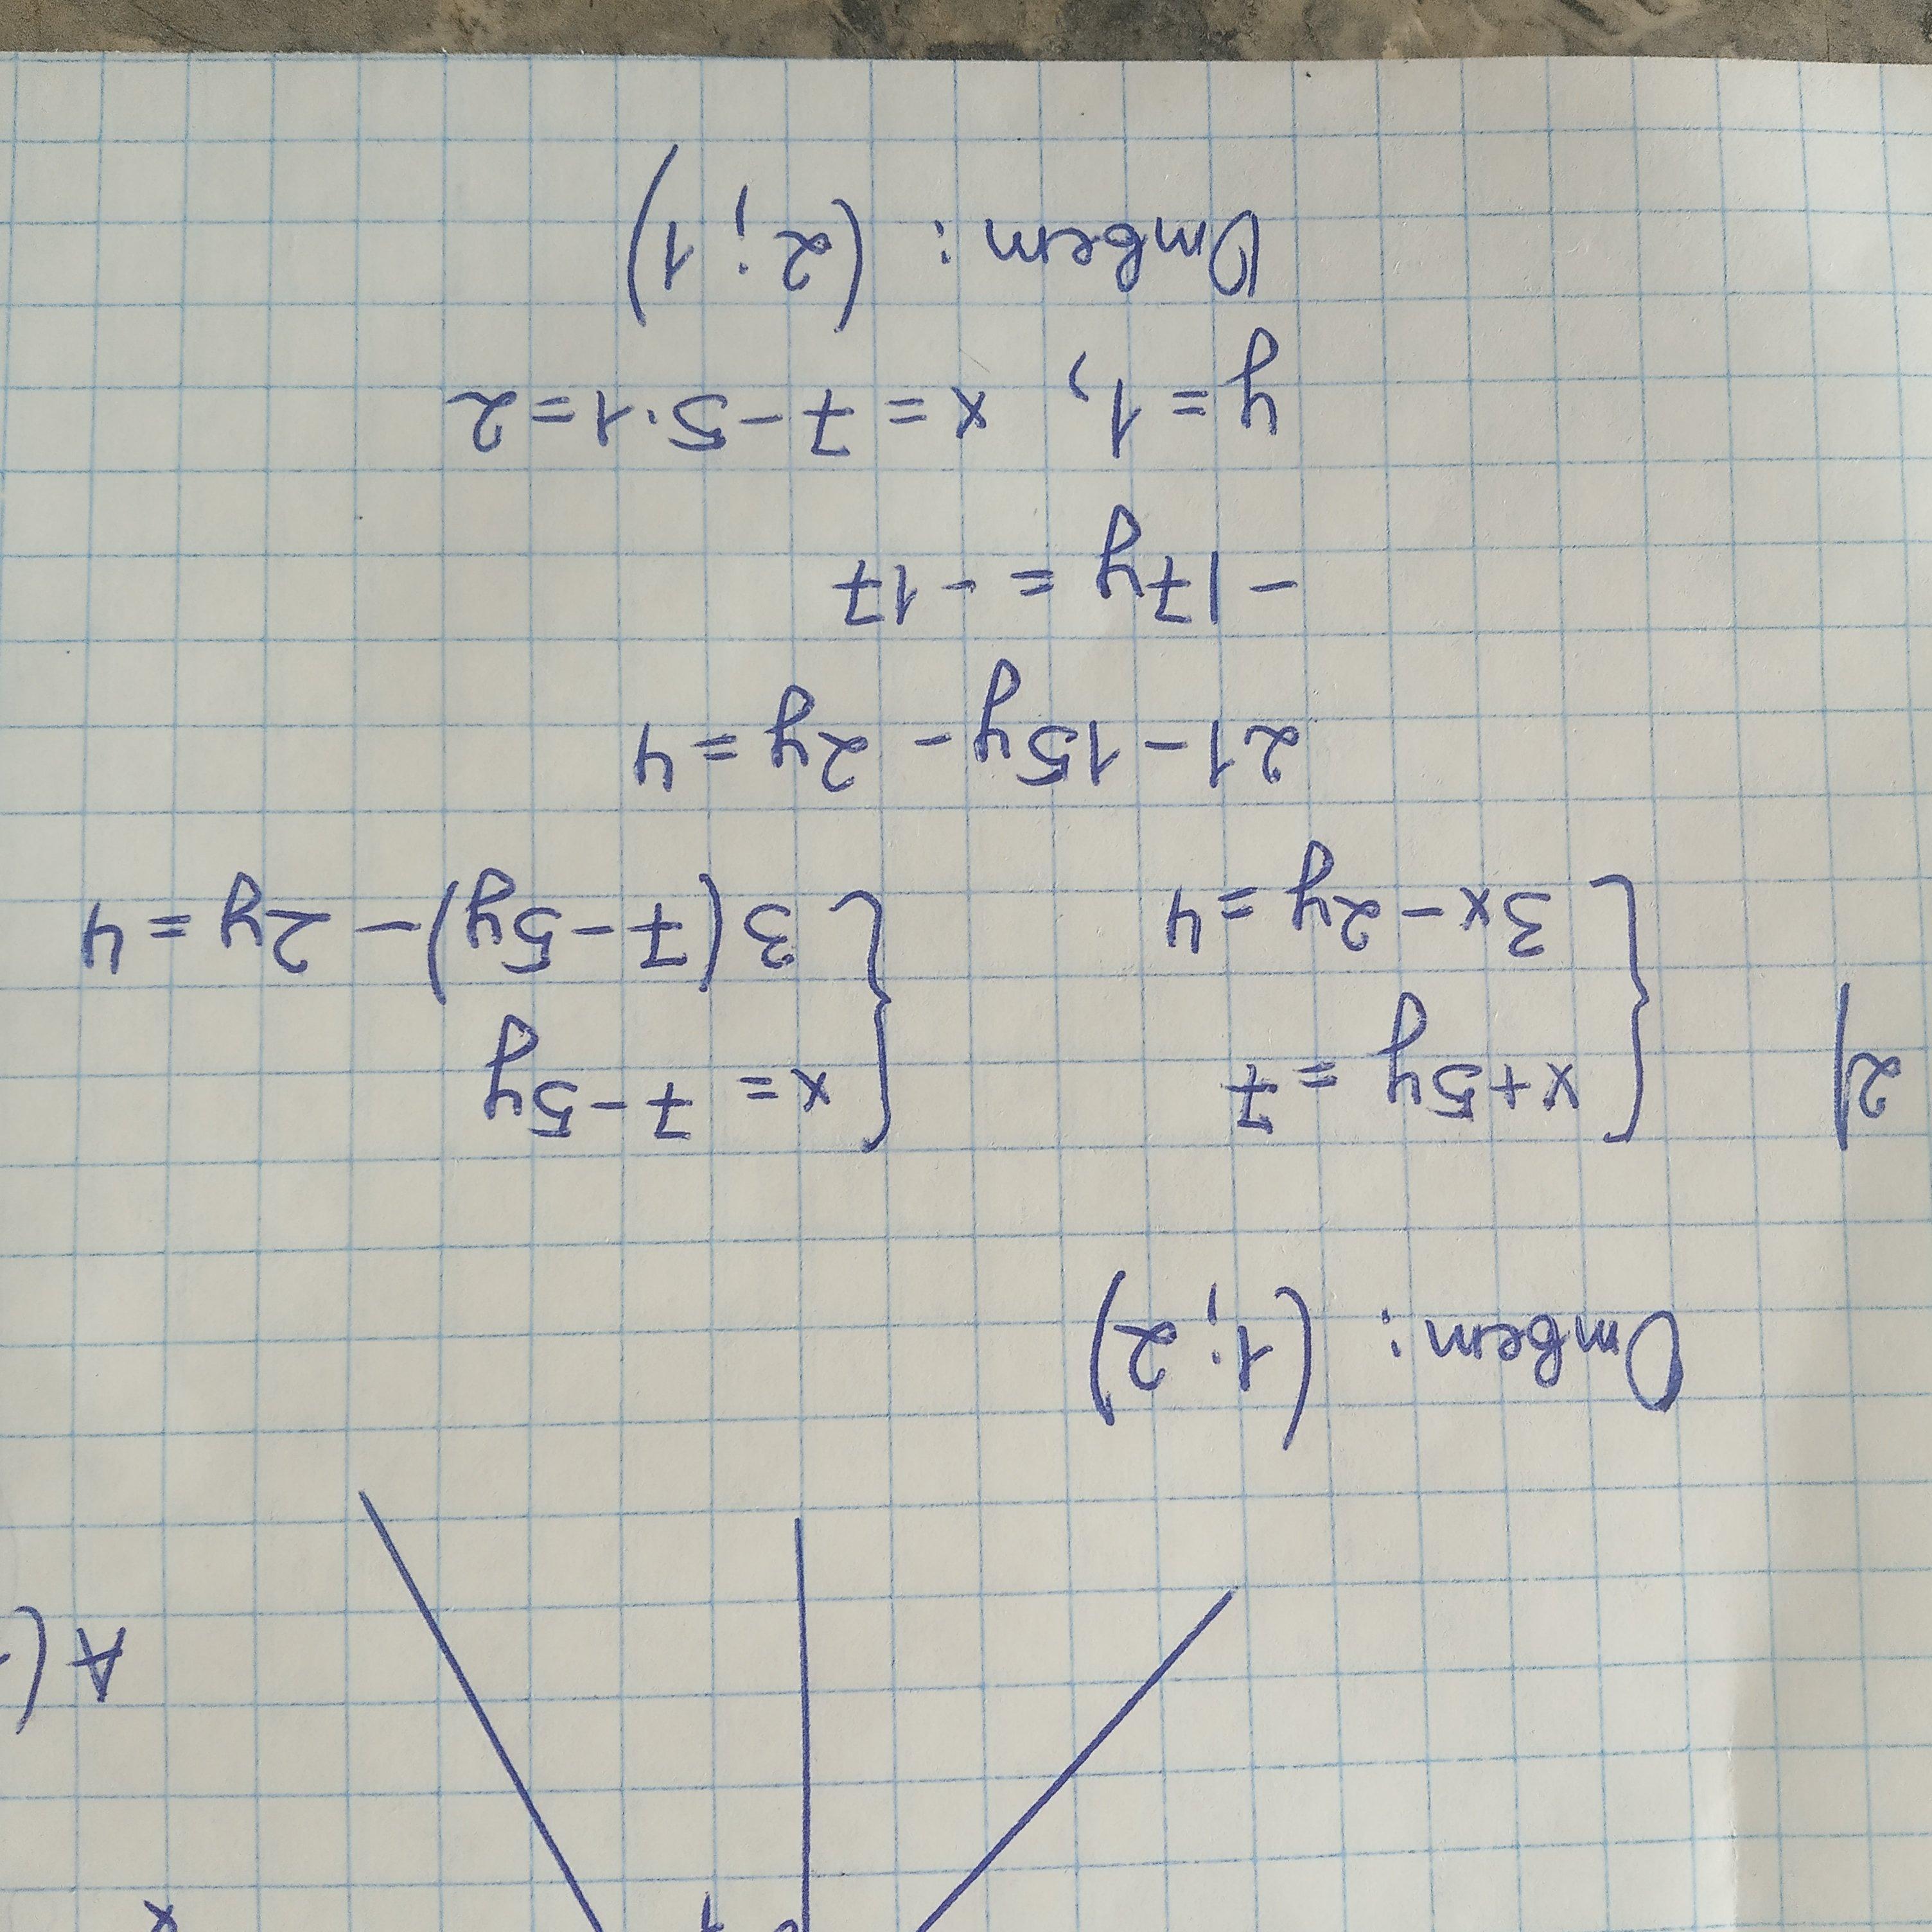 x
A (
Ответ: (1; 2)
2) { x + 5y = 7 { x = 7 - 5y
{ 3x - 2y = 4 { 3(7 - 5y) - 2y = 4
21 - 15y - 2y = 4
-17y = -17
y = 1, x = 7 - 5·1 = 2
Ответ: (2; 1)